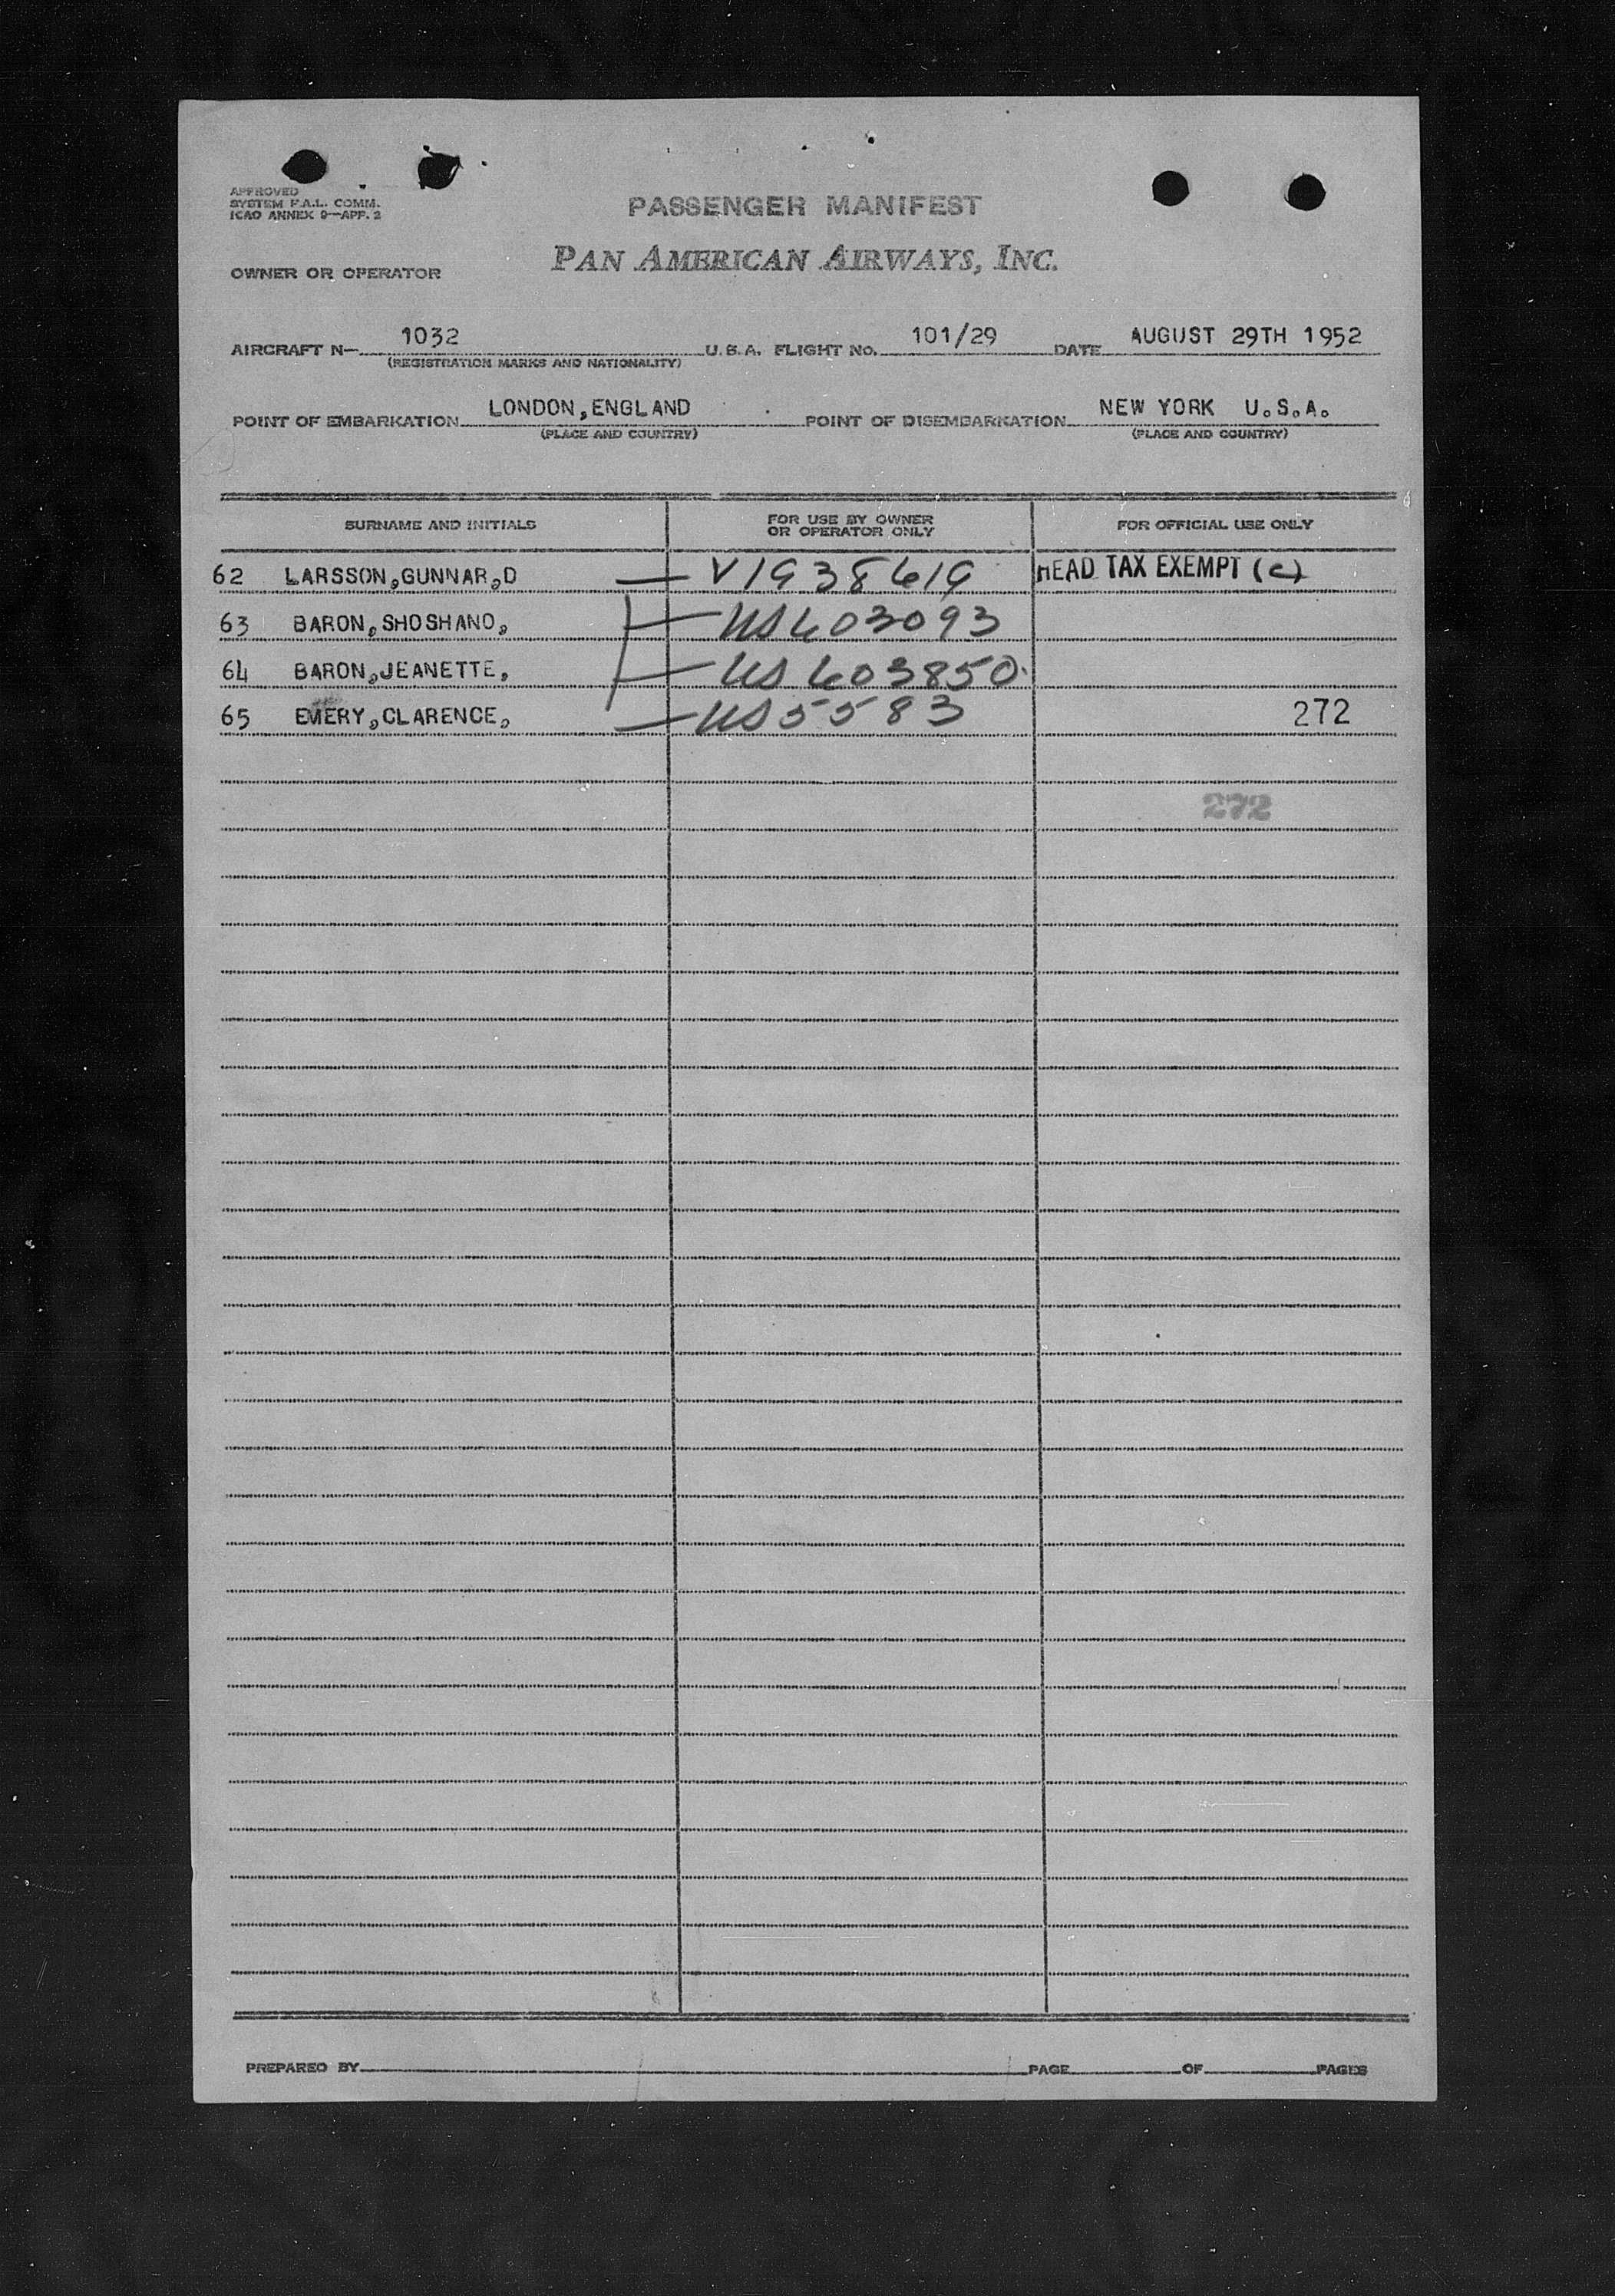 APPROVED
SYSTEM F.A.L. COMM.
ICAO ANNEX 9—APP. 2
PASSENGER MANIFEST
PAN AMERICAN AIRWAYS, INC.
OWNER OR OPERATOR
AIRCRAFT N— 1032 U.S.A. FLIGHT NO. 101/29 DATE AUGUST 29TH 1952
(REGISTRATION MARKS AND NATIONALITY)
POINT OF EMBARKATION LONDON,ENGLAND POINT OF DISEMBARKATION NEW YORK U.S.A.
(PLACE AND COUNTRY) (PLACE AND COUNTRY)
SURNAME AND INITIALS FOR USE BY OWNER OR OPERATOR ONLY FOR OFFICIAL USE ONLY
62 LARSSON,GUNNAR,D — V1938619 HEAD TAX EXEMPT (c)
63 BARON,SHOSHANO, — US603093
64 BARON,JEANETTE, — US 603850
65 EMERY,CLARENCE, — US5583 272
272
PREPARED BY PAGE OF PAGES